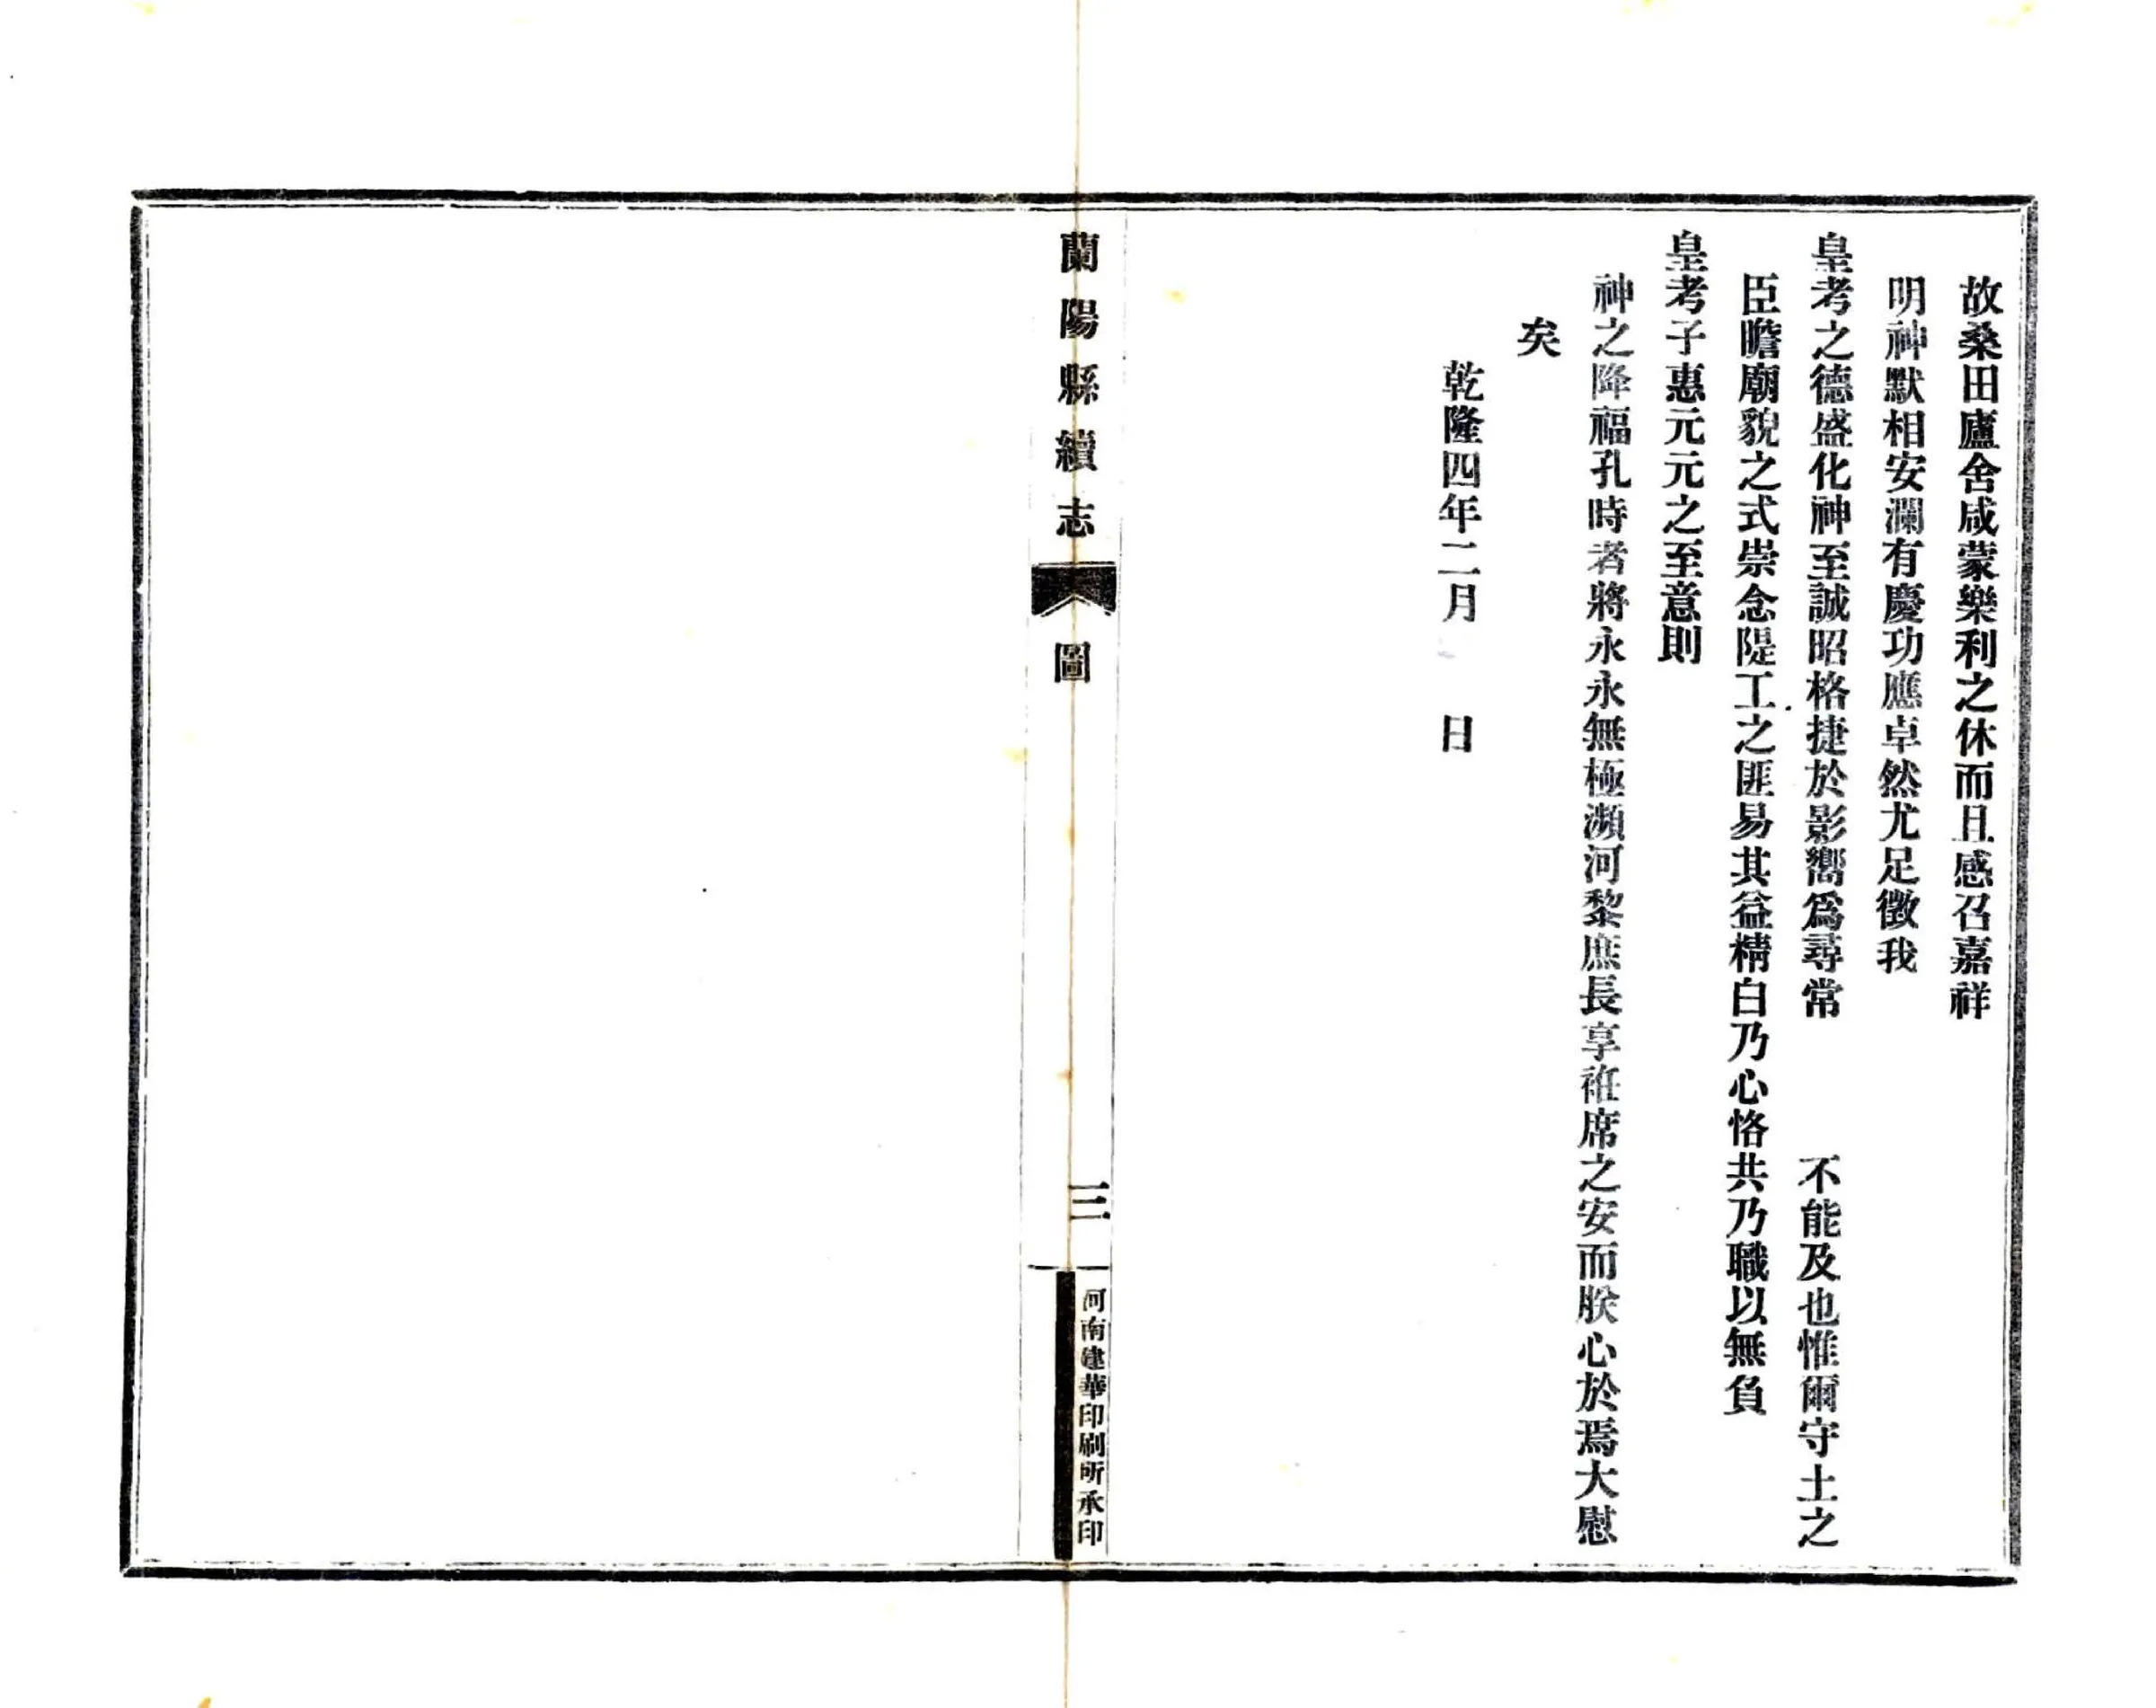 故桑田廬舍咸蒙樂利之休而且感召嘉祥
明神默相安瀾有慶功應卓然尤足徵我
皇考之德盛化神至誠昭格捷於影嚮爲尋常　　　不能及也惟爾守土之
臣瞻廟貌之式崇念隄工之匪易其益精白乃心恪共乃職以無負
皇考子惠元元之至意則
神之降福孔時者將永永無極瀕河黎庶長享袵席之安而朕心於焉大慰
矣
乾隆四年二月　　日
蘭陽縣續志
圖
三
河南建華印刷所承印